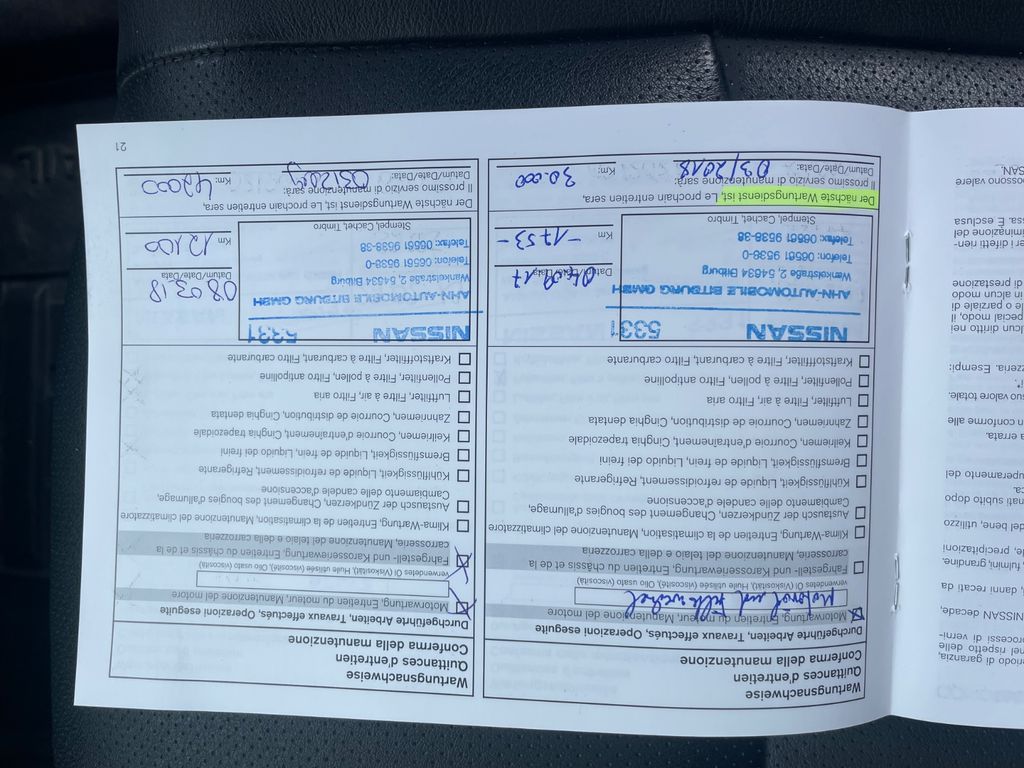 periodo di garanzia,
nel rispetto delle
rocessi di verni-
NISSAN decade,
danni recati da
fulmini, grandine.
e, precipitazioni
del bene, utilizzo
nati subito dopo
ca.
uperamento del
a errata.
n conforme alle
suo valore totale.
zzeria. Esempi:
lcun diritto nei
pecial modo, il
e o parziale di
in alcun modo
di prestazione
r i diretti rien-
iminazione del
sa. È esclusa
possono valere
SAN.
Wartungsnachweise
Quittances d'entretien
Conferma della manutenzione
Durchgeführte Arbeiten, Travaux effectués, Operazioni eseguite
Motorwartung, Entretien du moteur, Manutenzione del motore
Motoröl und Filterwechsel
verwendetes Öl (Viskosität), Huile utilisée (viscosité), Olio usato (viscosità)
Fahrgestell- und Karosseriewartung, Entretien du châssis et de la
carrosserie, Manutenzione del telaio e della carrozzeria
Klima-Wartung, Entretien de la climatisation, Manutenzione del climatizzatore
Austausch der Zündkerzen, Changement des bougies d'allumage,
Cambiamento delle candele d'accensione
Kühlflüssigkeit, Liquide de refroidissement, Refrigerante
Bremsflüssigkeit, Liquide de frein, Liquido dei freini
Keilriemen, Courroie d'entraînement, Cinghia trapezoidale
Zahnriemen, Courroie de distribution, Cinghia dentata
Luftfilter, Filtre à air, Filtro aria
Pollenfilter, Filtre à pollen, Filtro antipolline
Kraftstofffilter, Filtre à carburant, Filtro carburante
NISSAN 5331
AHN-AUTOMOBILE BITBURG GMBH
Wankelstraße 2, 54634 Bitburg
Telefon: 06561 9538-0
Telefax: 06561 9538-38
Stempel, Cachet, Timbro
04.09.17
Datum/Date/Data
-1753-
Km
Der nächste Wartungsdienst ist, Le prochain entretien sera,
Il prossimo servizio di manutenzione sarà:
Datum/Date/Data: 03/2018 Km: 30.000
Wartungsnachweise
Quittances d'entretien
Conferma della manutenzione
Durchgeführte Arbeiten, Travaux effectués, Operazioni eseguite
Motorwartung, Entretien du moteur, Manutenzione del motore
verwendetes Öl (Viskosität), Huile utilisée (viscosité), Olio usato (viscosità)
Fahrgestell- und Karosseriewartung, Entretien du châssis et de la
carrosserie, Manutenzione del telaio e della carrozzeria
Klima-Wartung, Entretien de la climatisation, Manutenzione del climatizzatore
Austausch der Zündkerzen, Changement des bougies d'allumage,
Cambiamento delle candele d'accensione
Kühlflüssigkeit, Liquide de refroidissement, Refrigerante
Bremsflüssigkeit, Liquide de frein, Liquido dei freini
Keilriemen, Courroie d'entraînement, Cinghia trapezoidale
Zahnriemen, Courroie de distribution, Cinghia dentata
Luftfilter, Filtre à air, Filtro aria
Pollenfilter, Filtre à pollen, Filtro antipolline
Kraftstofffilter, Filtre à carburant, Filtro carburante
NISSAN 5331
AHN-AUTOMOBILE BITBURG GMBH
Wankelstraße 2, 54634 Bitburg
Telefon: 06561 9538-0
Telefax: 06561 9538-38
Stempel, Cachet, Timbro
08.03.18
Datum/Date/Data
12100
Km
Der nächste Wartungsdienst ist, Le prochain entretien sera,
Il prossimo servizio di manutenzione sarà:
Datum/Date/Data: Km: 42000
21